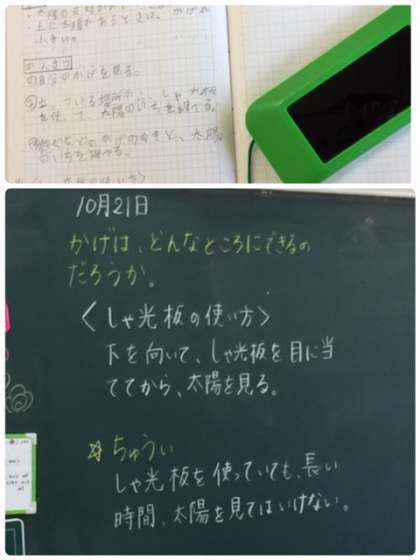 上に太陽があるときは、かげが
小さい。
かんさつ
①自分のかげを見る。
②立っている場所から、しゃ光板
を使って、太陽のいちを調べる。
のかげの向きと、太陽
のいちを調べる。
10月21日
かげは、どんなところにできるの
だろうか。
〈しゃ光板の使い方〉
下を向いて、しゃ光板を目に当
ててから、太陽を見る。
☆ちゅうい
しゃ光板を使っていても、長い
時間、太陽を見てはいけない。